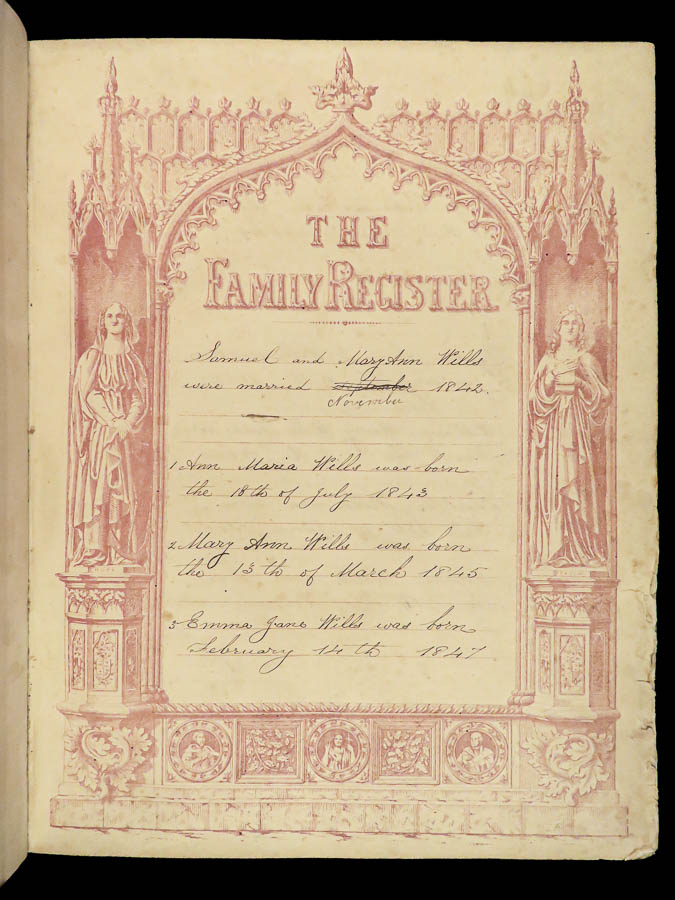 THE
FAMILY REGISTER
Samuel and Mary Ann Wills
were married september 1842.
November
1 Ann Maria Wills was born
the 18th of July 1843
2 Mary Ann Wills was born
the 13th of March 1845
3 Emma Jane Wills was born
February 14th 1847